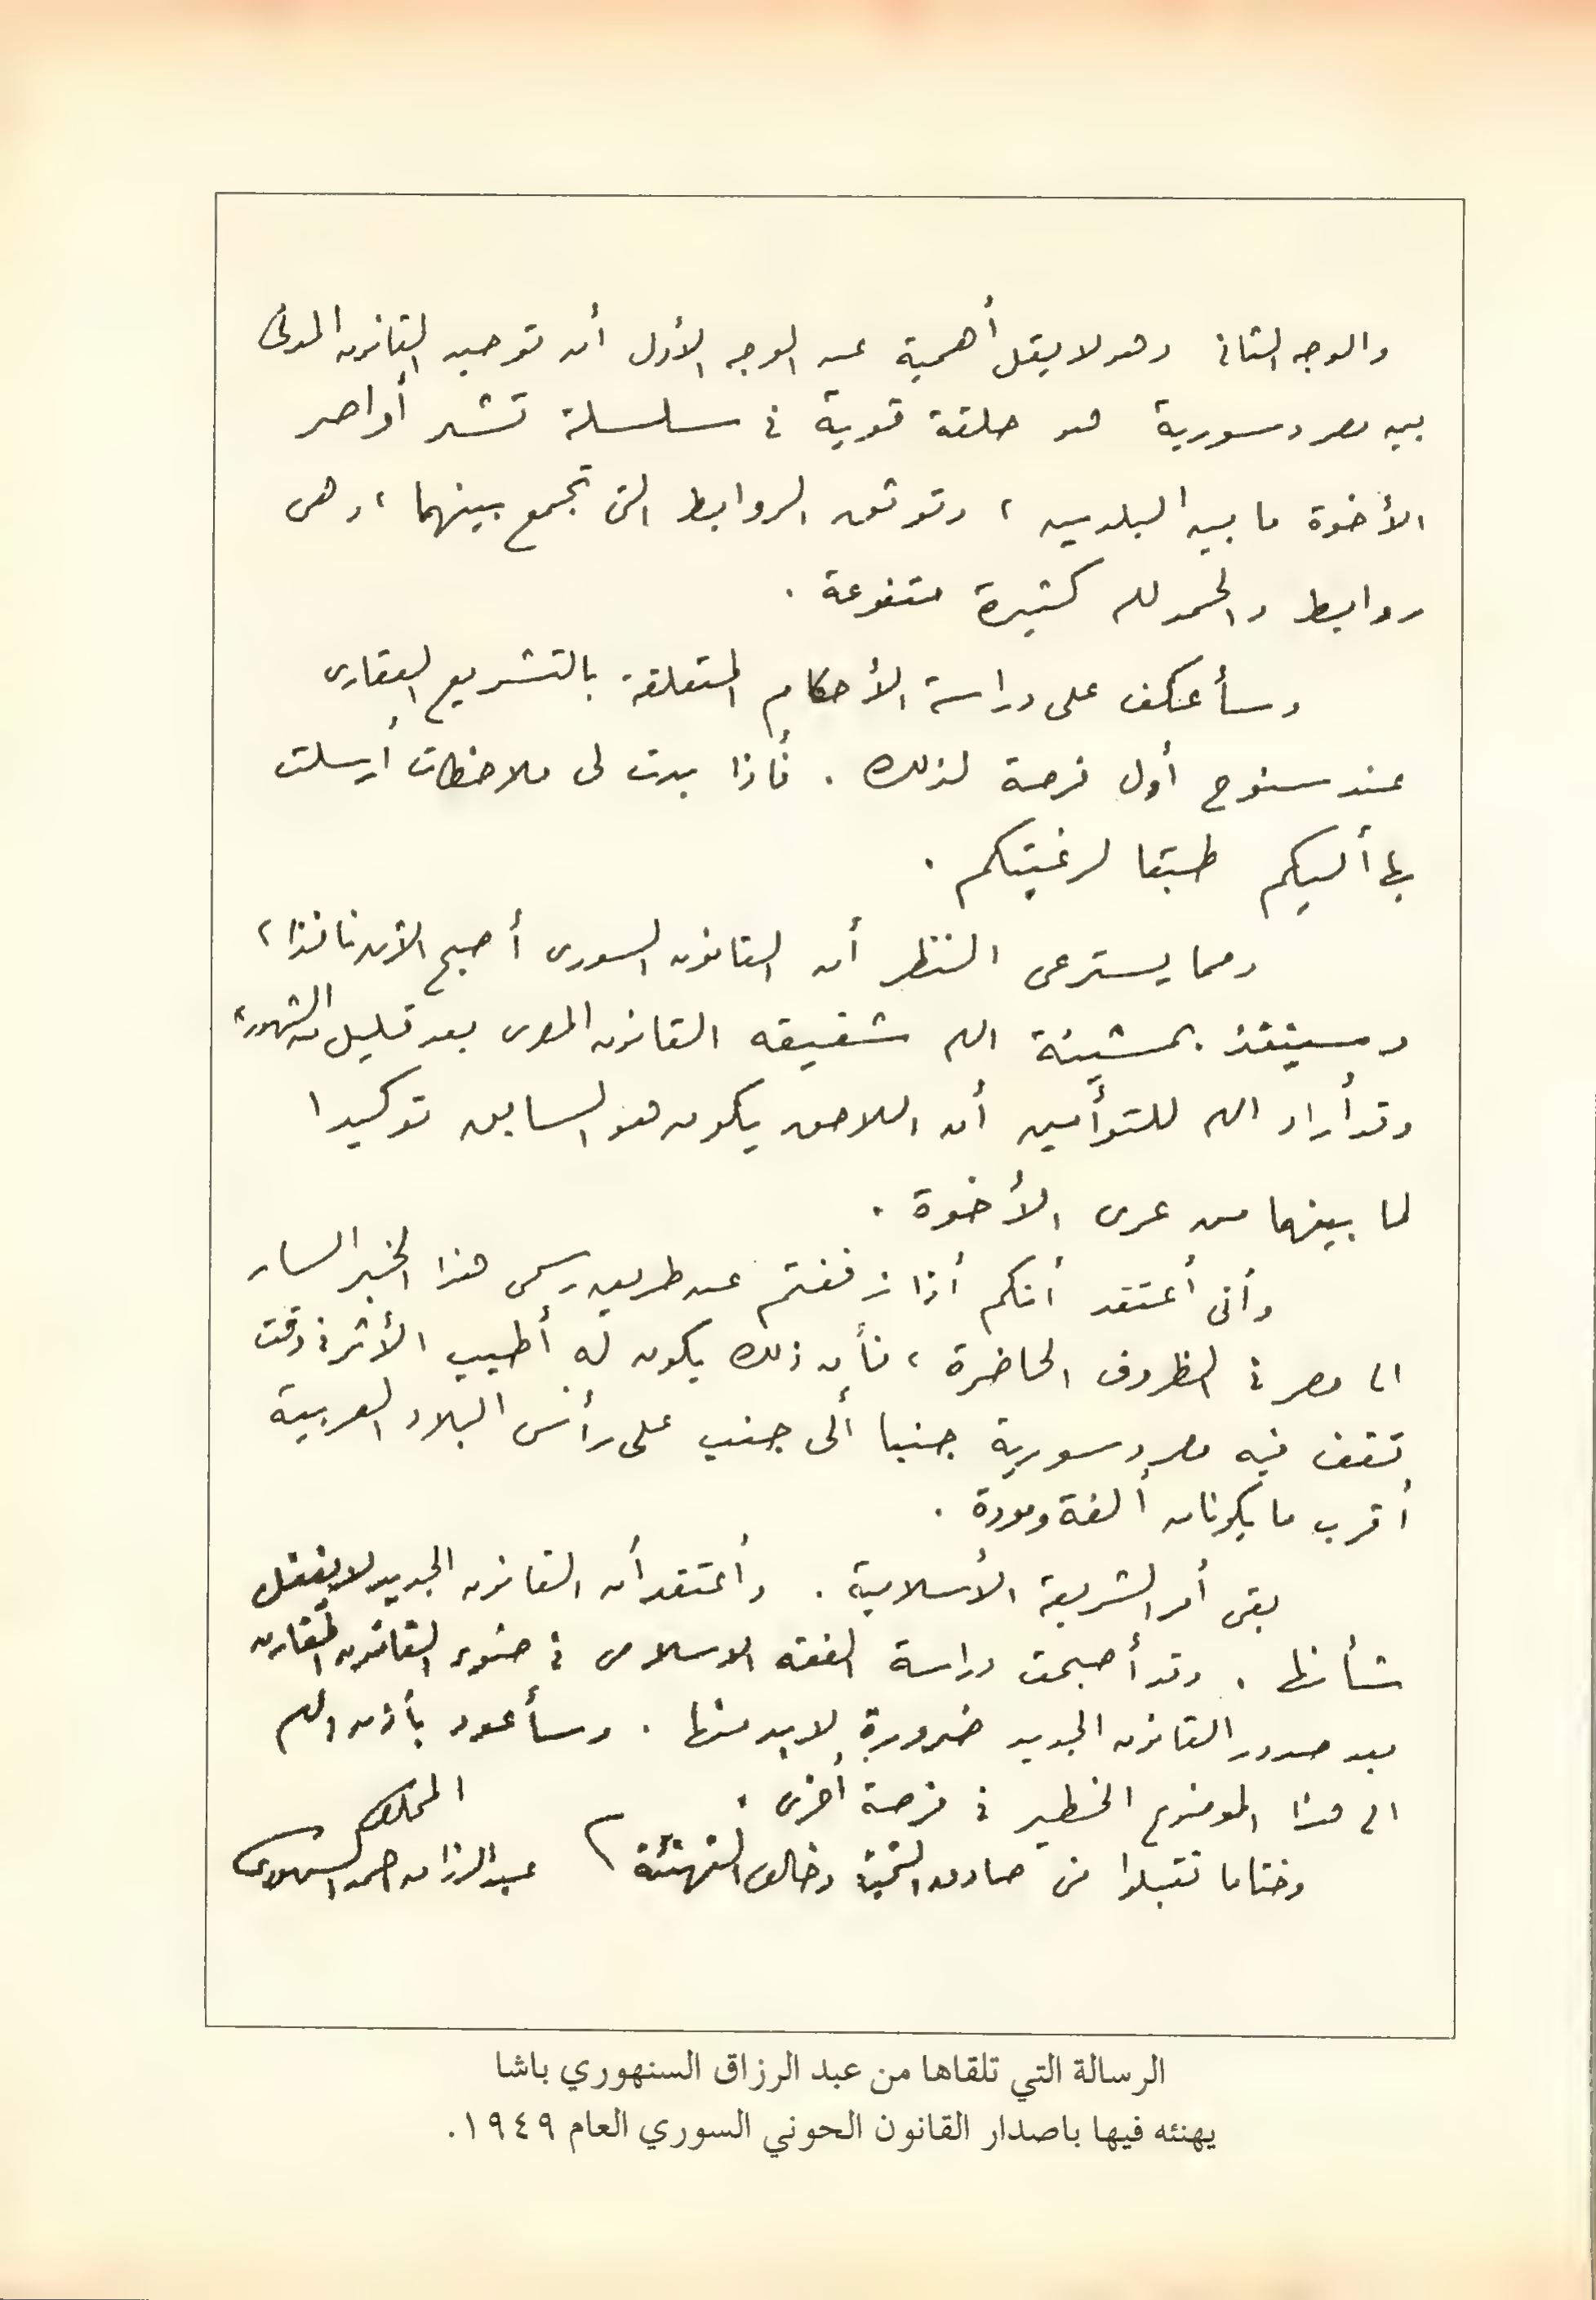 والوجه الثانى وهو لا يقل أهمية عن الوجه الأول أن توحيد القانون المدنى
بين مصر وسورية هو حلقة قوية فى سلسلة تشد أواصر
الأخوة ما بين البلدين ، وتوثق الروابط التى تجمع بينهما ، وهى
روابط والحمد لله كثيرة متنوعة .
وسأعكف على دراسة الأحكام المتعلقة بالتشريع العقارى
عند سنوح أول فرصة لذلك . فأذا بدت لى ملاحظات أرسلت
بها أليكم طبقا لرغبتكم .
ومما يسترعى النظر أن القانون السورى أصبح الآن نافذا ،
وسينفذ بمشيئة الله شقيقه القانون المصرى بعد قليل من الشهور ،
وقد أراد الله للتوأمين أن اللاحق يكون هو السابق توكيدا
لما بينهما من عرى الأخوة .
وأنى أعتقد أنكم أذا زففتم عن طريق رسمى هذا الخبر السار
الى مصر فى الظروف الحاضرة ، فأن ذلك يكون له أطيب الأثر فى وقت
تقف فيه مصر وسورية جنبا ألى جنب على رأس البلاد العربية
أقرب ما يكونان ألفة ومودة .
بقى أمر الشريعة الأسلامية . وأعتقد أن القانون الجديد لا يغفل
شأنها . وقد أصبحت دراسة الفقه الاسلامى فى ضوء القانون المقارن
بعد صدور القانون الجديد ضرورة لابد منها . وسأعود بأذن الله
الى هذا الموضوع الخطير فى فرصة أخرى .
وختاما تقبلوا منى صادق التحية وخالص التهنئة
المخلص
عبد الرزاق احمد السنهورى
الرسالة التي تلقاها من عبد الرزاق السنهوري باشا
يهنئه فيها باصدار القانون الحوني السوري العام ١٩٤٩.